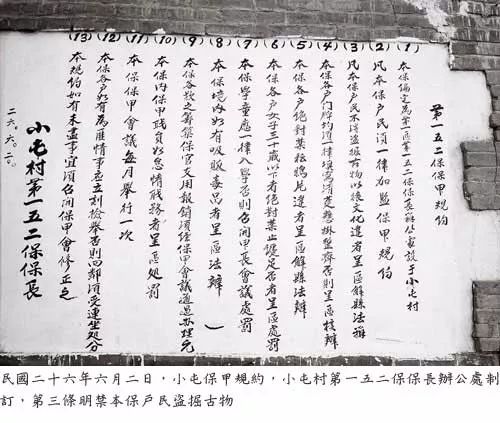 第一五二保保甲規約
(1) 本保編定為第一區第一五二保保長辦公處設于小屯村
(2) 凡本保戶民須一律加盟保甲規約
(3) 凡本保戶民不得盜掘古物以後文化違者呈區解縣法辦
(4) 本保各戶門牌均須一律填寫清楚懸掛整齊否則呈區核辦
(5) 本保各戶絕對禁按鴉片違者呈區解縣法辦
(6) 本保各戶女子三十歲以下者絕對禁止纏足否者呈區處罰
(7) 本保學童應一律入學否則召開甲長會議處罰
(8) 本保境內如有吸販毒品者呈區法辦
(9) 本保各牧之籌築保官文用報銷須經保甲會議通過辦理完
(10) 本保內保甲職員如怠惰職務者呈區處罰
(11) 本保保甲會議每月舉行一次
(12) 本保各戶如有為匪情事應立刻檢舉否則四鄰須受連坐處分
(13) 本規約如有未盡事宜須召開保甲會修正之
小屯村第一五二保保長
二六.六.二.
民國二十六年六月二日，小屯保甲規約，小屯村第一五二保保長辦公處制
訂，第三條明禁本保戶民盜掘古物